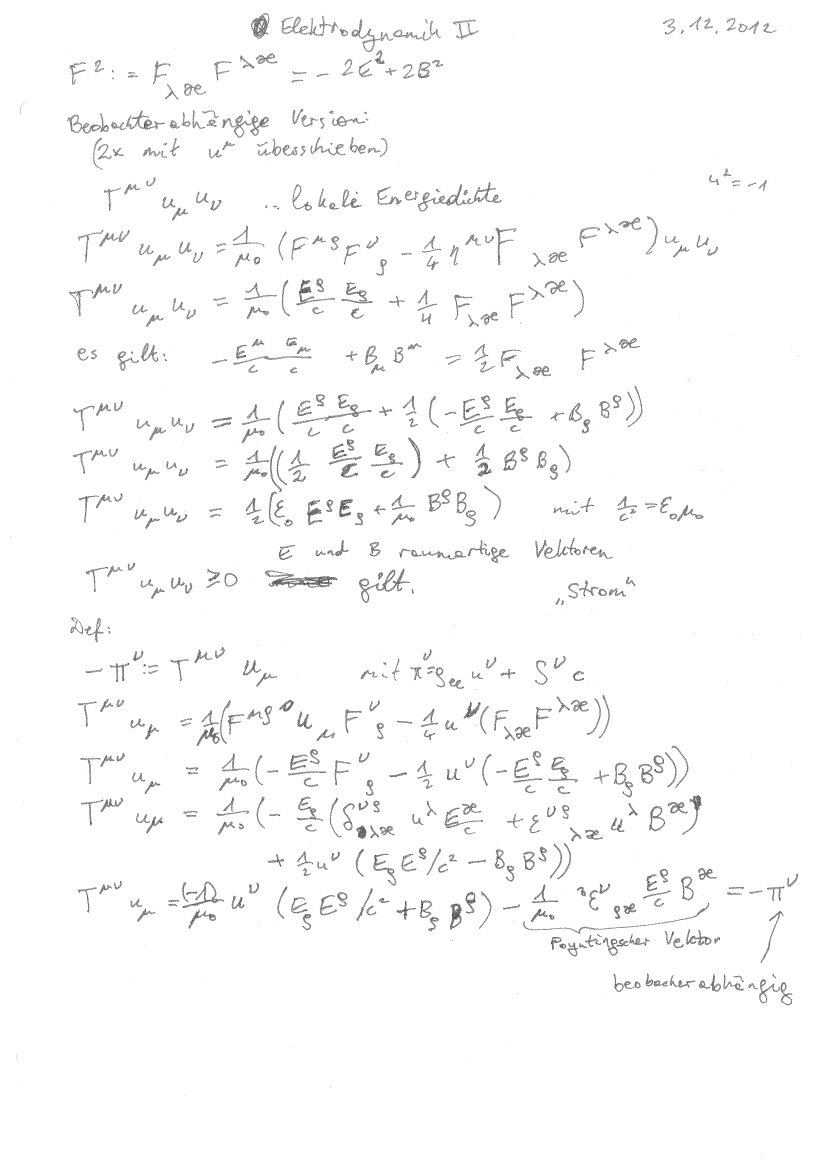 Elektrodynamik II 3.12.2012
F²: = F_λæ F^λæ = - 2E² + 2B²
Beobachterabhängige Version:
(2x mit u^μ überschieben)
u² = -1
T^μν u_μ u_ν .. lokale Energiedichte
T^μν u_μ u_ν = 1/μ₀ (F^μϱ F^ν_ϱ - 1/4 η^μν F_λæ F^λæ) u_μ u_ν
T^μν u_μ u_ν = 1/μ₀ (E^ϱ/c E_ϱ/c + 1/4 F_λæ F^λæ)
es gilt: - E^μ/c E_μ/c + B_μ B^μ = 1/2 F_λæ F^λæ
T^μν u_μ u_ν = 1/μ₀ (E^ϱ/c E_ϱ/c + 1/2 (- E^ϱ/c E_ϱ/c + B_ϱ B^ϱ))
T^μν u_μ u_ν = 1/μ₀ ((1/2 E^ϱ/c E_ϱ/c) + 1/2 B^ϱ B_ϱ)
T^μν u_μ u_ν = 1/2 (ε₀ E^ϱ E_ϱ + 1/μ₀ B^ϱ B_ϱ) mit 1/c² = ε₀ μ₀
E und B raumartige Vektoren
T^μν u_μ u_ν ≥ 0 gilt. „Strom“
Def:
- π^ν := T^μν u_μ mit π^ν = ϱ_ee u^ν + S^ν c
T^μν u_μ = 1/μ₀ (F^μϱ u_μ F^ν_ϱ - 1/4 u^ν (F_λæ F^λæ))
T^μν u_μ = 1/μ₀ (- E^ϱ/c F^ν_ϱ - 1/2 u^ν (- E^ϱ/c E_ϱ/c + B_ϱ B^ϱ))
T^μν u_μ = 1/μ₀ (- E_ϱ/c (δ^νϱ_λæ u^λ E^æ/c + ε^νϱ_λæ u^λ B^æ)
+ 1/2 u^ν (E_ϱ E^ϱ/c² - B_ϱ B^ϱ))
T^μν u_μ = (-1)/μ₀ u^ν (E_ϱ E^ϱ/c² + B_ϱ B^ϱ) - 1/μ₀ ³ε^ν_ϱæ E^ϱ/c B^æ = - π^ν
Poyntingscher Vektor
beobacherabhängig